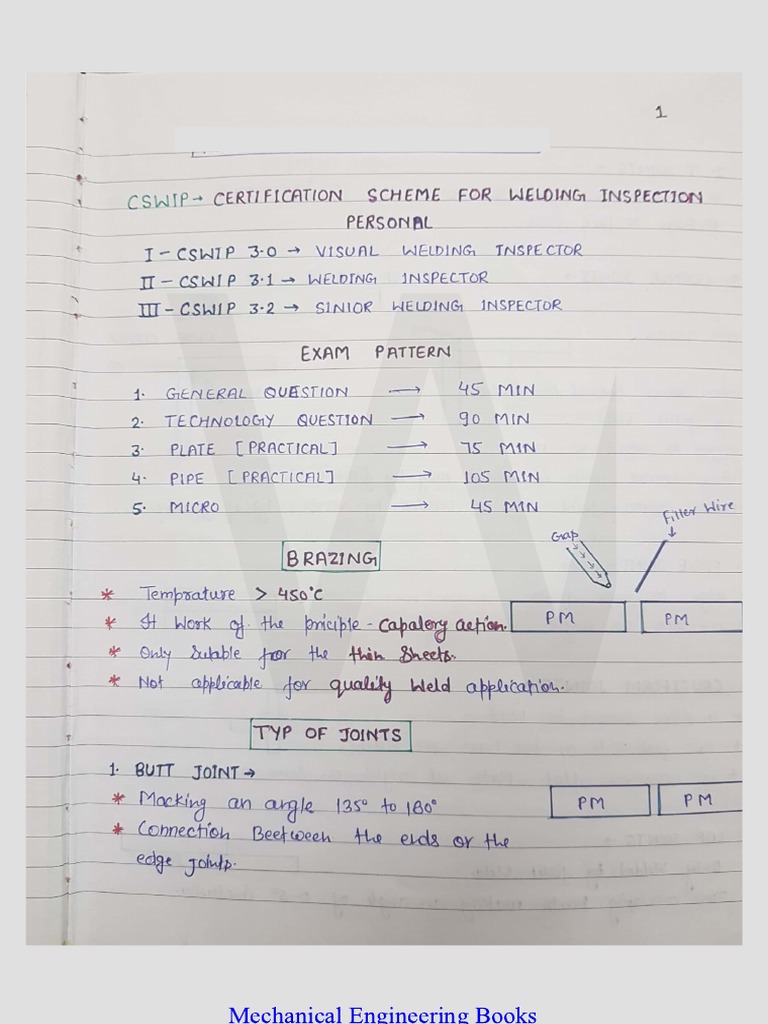 1
CSWIP → CERTIFICATION SCHEME FOR WELDING INSPECTION
PERSONAL
I - CSWIP 3.0 → VISUAL WELDING INSPECTOR
II - CSWIP 3.1 → WELDING INSPECTOR
III - CSWIP 3.2 → SINIOR WELDING INSPECTOR
EXAM PATTERN
1. GENERAL QUESTION → 45 MIN
2. TECHNOLOGY QUESTION → 90 MIN
3. PLATE [PRACTICAL] → 75 MIN
4. PIPE [PRACTICAL] → 105 MIN
5. MICRO → 45 MIN
Filler Wire
Gap
BRAZING
* Temprature > 450°C
* It Work of the priciple - Capalery action.
PM PM
* Only Sutable froor the thin Sheets.
* Not applicable for quality Weld application.
TYP OF JOINTS
1. BUTT JOINT →
* Macking an angle 135° to 180°
PM PM
* Connection Beetween the ends or the
edge joints.
Mechanical Engineering Books